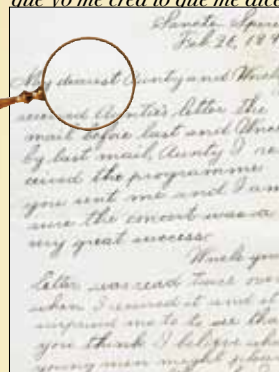 que yo me creo lo que me dice
Sancte Spiri
Feb 28, 189
My dearest Aunty and Uncl
received Auntie's letter the
mail before last and Uncle
by last mail, Aunty I re
ceived the programme
you sent me and I am
sure the concert was a
very great success.
Uncle you
letter was read twice over
when I received it and it
surprised me to to see tha
you think I believe wha
young men might